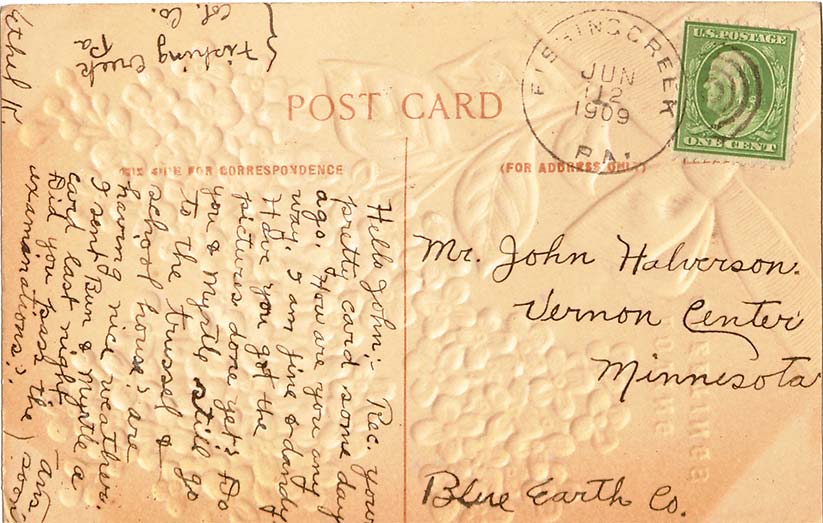 POST CARD
THIS SIDE FOR CORRESPONDENCE
(FOR ADDRESS ONLY)
FISHINGCREEK
JUN
12
1909
PA.
U.S. POSTAGE
ONE CENT
Mr. John Halverson.
Vernon Center
Minnesota
Blue Earth Co.
Fishing Creek
Pa
Col. Co.
Hello John:- Rec. your
pretty card some days
ago. How are you any
way. I am fine & dandy
Have you got the
pictures done yet? Do
you & Myrtle still go
to the trussel &
school house; are
having nice weather.
I sent Bun & Myrtle a
card last night.
Did you pass the
examanations?
Ans.
soon
Ethel K.